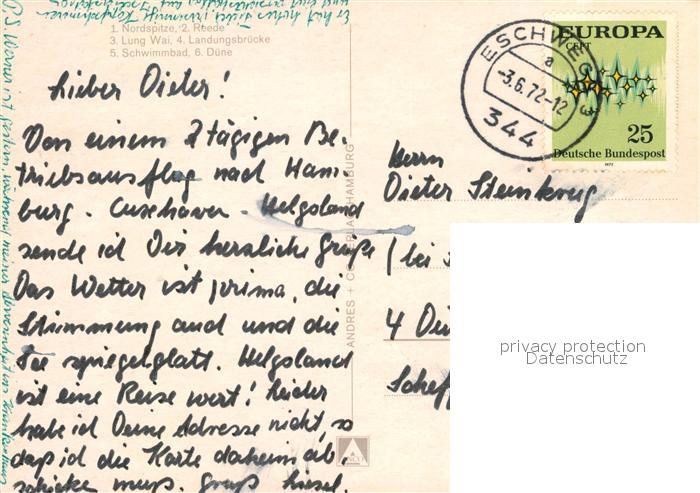 1. Nordspitze, 2. Reede
3. Lung Wai, 4. Landungsbrücke
5. Schwimmbad, 6. Düne
Lieber Dieter!
Von einem 2 tägigen Be-
triebsausflug nach Ham-
burg - Cuxhaven - Helgoland
sende ich Dir herzliche Grüße
Das Wetter ist prima, die
Stimmung auch und die
See spiegelglatt. Helgoland
ist eine Reise wert! Leider
habe ich Deine Adresse nicht, so
daß ich die Karte daheim ab-
schicke muß. Gruß
P.S. Werner ist gestern während meiner Abwesenheit ins Krankenhaus
ANDRES + CO VERLAG HAMBURG
ESCHWEGE
a
-3.6.72-12
344
3
EUROPA
CEPT
25
Deutsche Bundespost
1972
Herrn
Dieter Steinkrug
(bei
4 Dü
Schef
privacy protection
Datenschutz